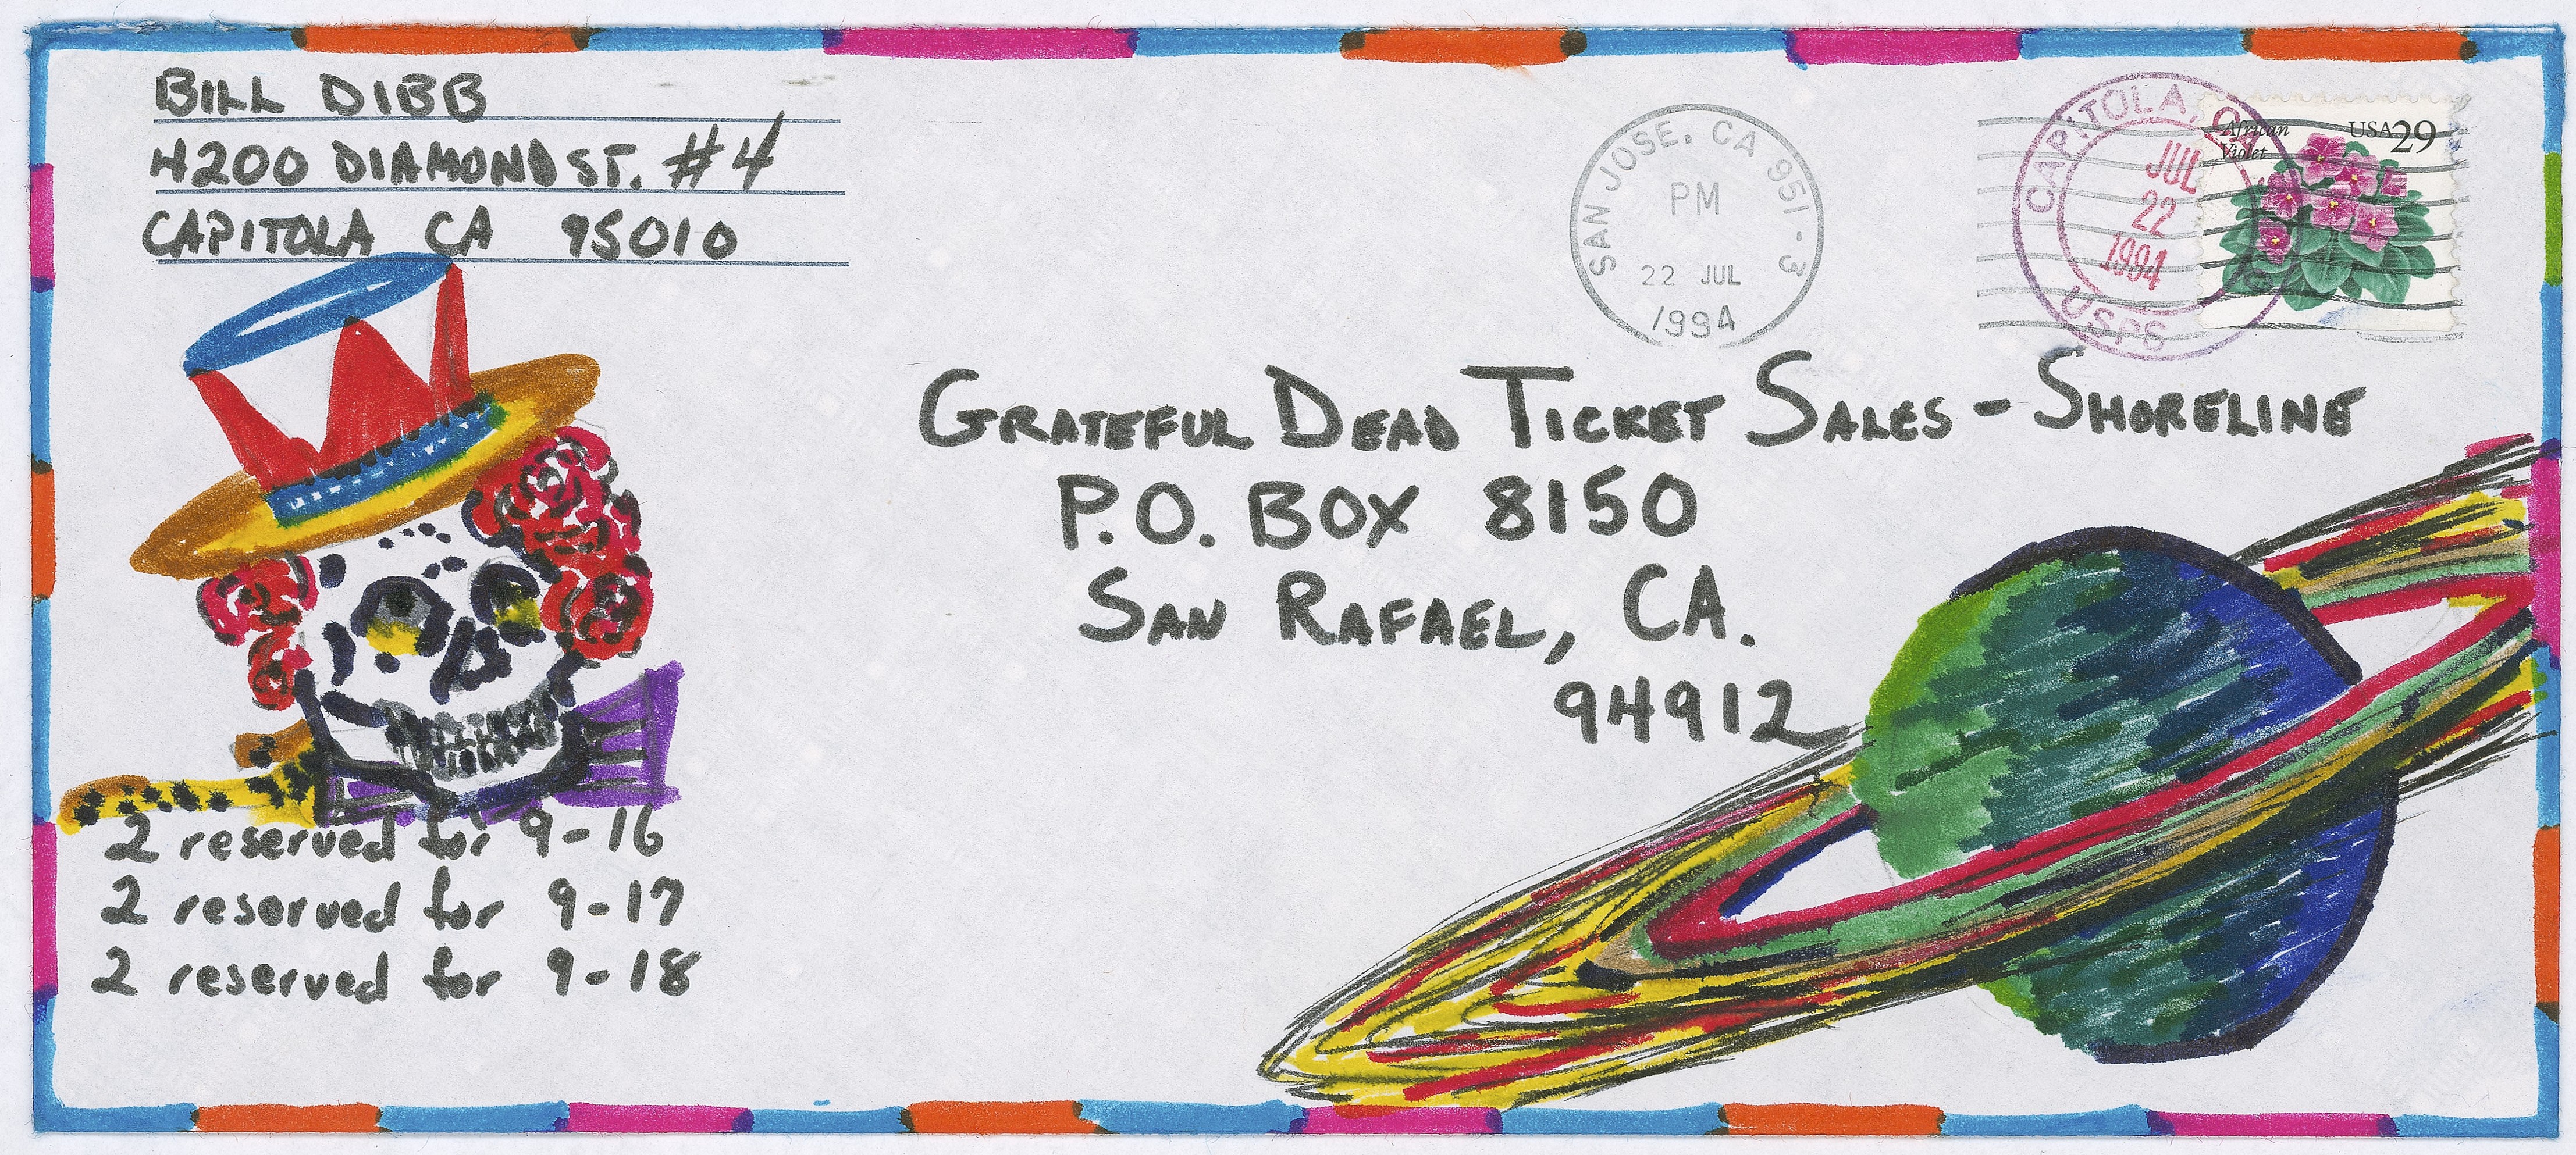 BILL DIBB
4200 DIAMOND ST. #4
CAPITOLA CA 95010
SAN JOSE, CA 951-3
PM
22 JUL
1994
CAPITOLA, C
JUL
22
1994
USPS
African
Violet
USA 29
GRATEFUL DEAD TICKET SALES - SHORELINE
P.O. BOX 8150
SAN RAFAEL, CA.
94912
2 reserved for 9-16
2 reserved for 9-17
2 reserved for 9-18